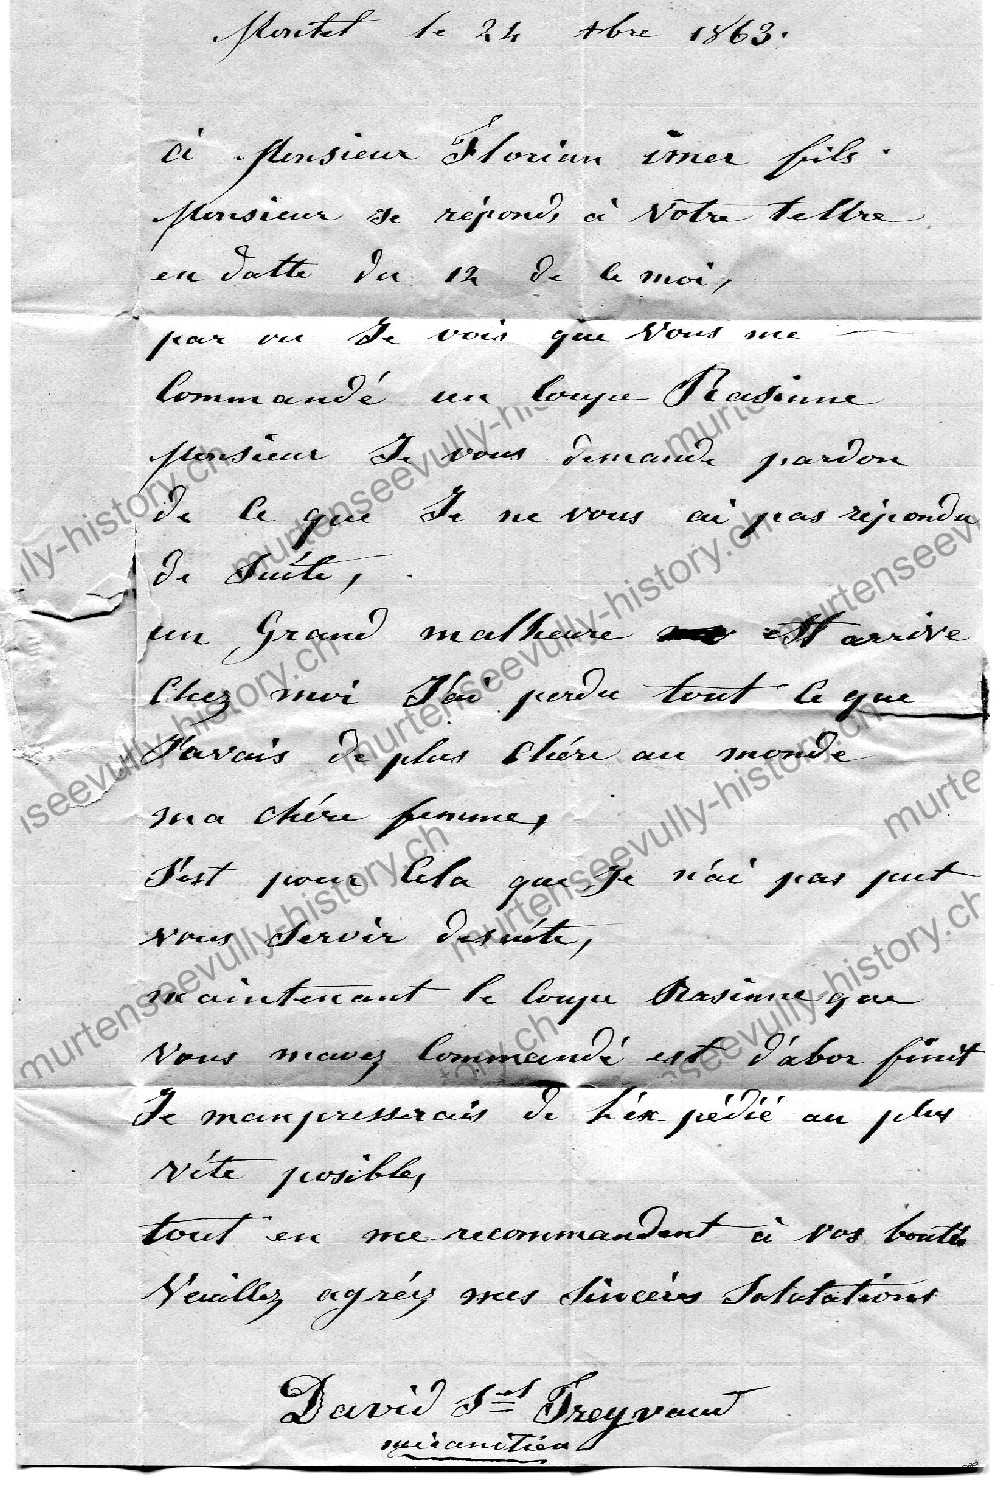 Montet le 24 xbre 1863.
à Monsieur Florian imer fils.
Monsieur Je répond, à Votre lettre
en datte du 12 de ce moi,
par ou Je vois que Vous me
Commandé un Coupe Rasinne
Monsieur Je vous demande pardon
de ce que Je ne vous ai pas répondu
de suite,
un Grand malheure est arrive
Chez moi J'ai perdu tout ce que
J'avais de plus Chére au monde
ma chére femme,
S'est pour Cela que Je n'ai pas put
vous servir desuite,
maintenant le Coupe Rasinne que
Vous mavez Commandé est d'abor finit
Je manpresserais de l'éxpédié au plus
vite posible,
tout en me recommandent à vos bontés
Veuillez agréez mes sincérs Salutations
David Sel Treyvaud
mécanitien
murtenseevully-history.ch